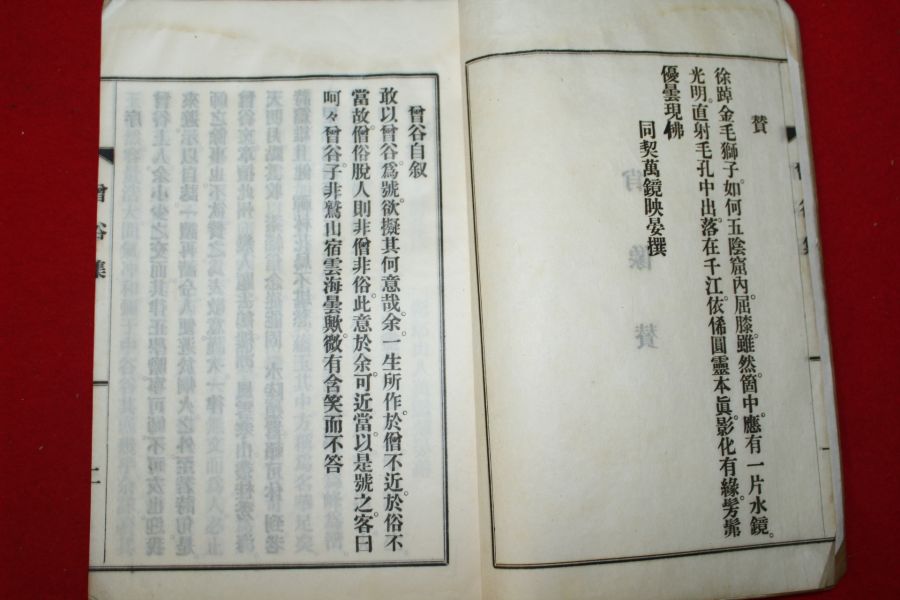 贊
徐踔金毛獅子。如何五陰窟內。屈膝。雖然箇中。應有一片水鏡。
光明。直射毛孔中出。落在千江。依俙圓靈本眞。影化有緣。髣髴
優曇現佛
同契萬鏡映晏撰
曾谷自叙
敢以曾谷。爲號。欲擬其何意哉。余。一生所作。於僧不近。於俗不
當。故。僧俗脫人則非僧非俗。此意於余。可近當。以是號之。客曰
呵々曾谷子。非鷲山宿雲海曇歟。微有含笑而不答
曾谷集
二